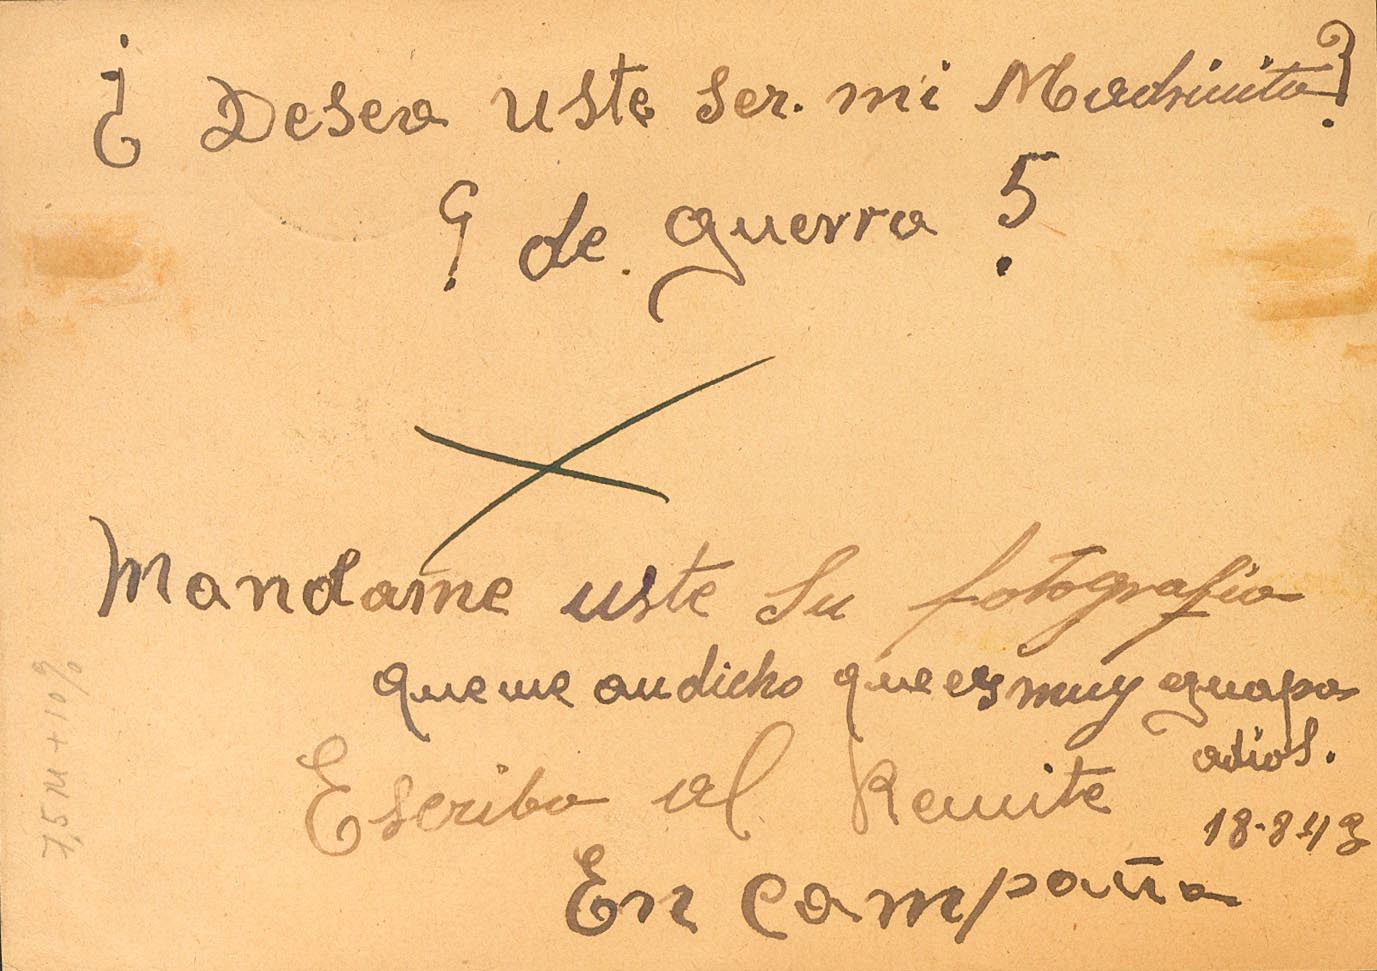 ¿ Desea uste ser. mi Madrinita?
¿ de guerra ?
Mandame uste su fotografia
que me an dicho que es muy guapa
adios.
Escriba al Remite
18-8-43
En campaña
7,5 M + 10%